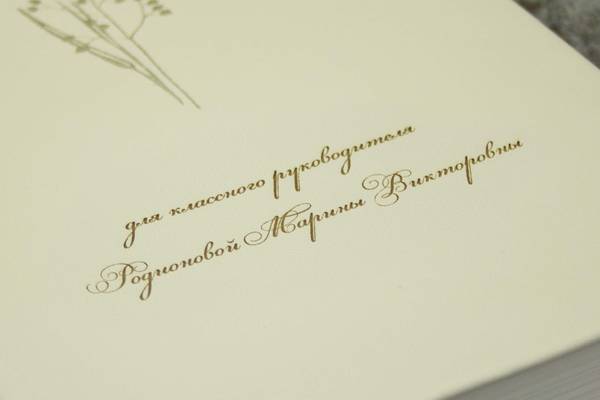 для классного руководителя
Родионовой Марины Викторовны